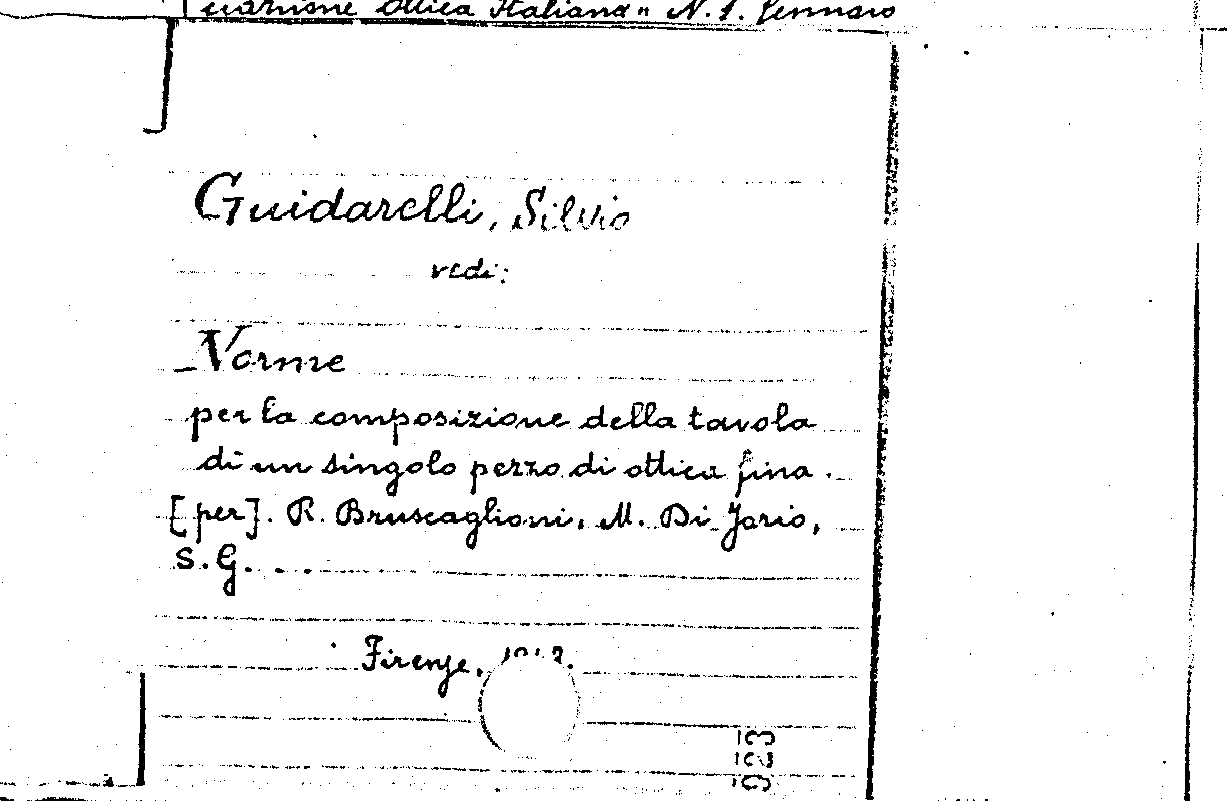 Ottica Italiana" N. 1. Gennaio
Guidarelli, Silvio
vedi:
Norme
per la composizione della tavola
di un singolo pezzo di ottica fina.
[per]. R. Bruscaglioni, M. Di Jorio,
S. G. . . .
Firenze,